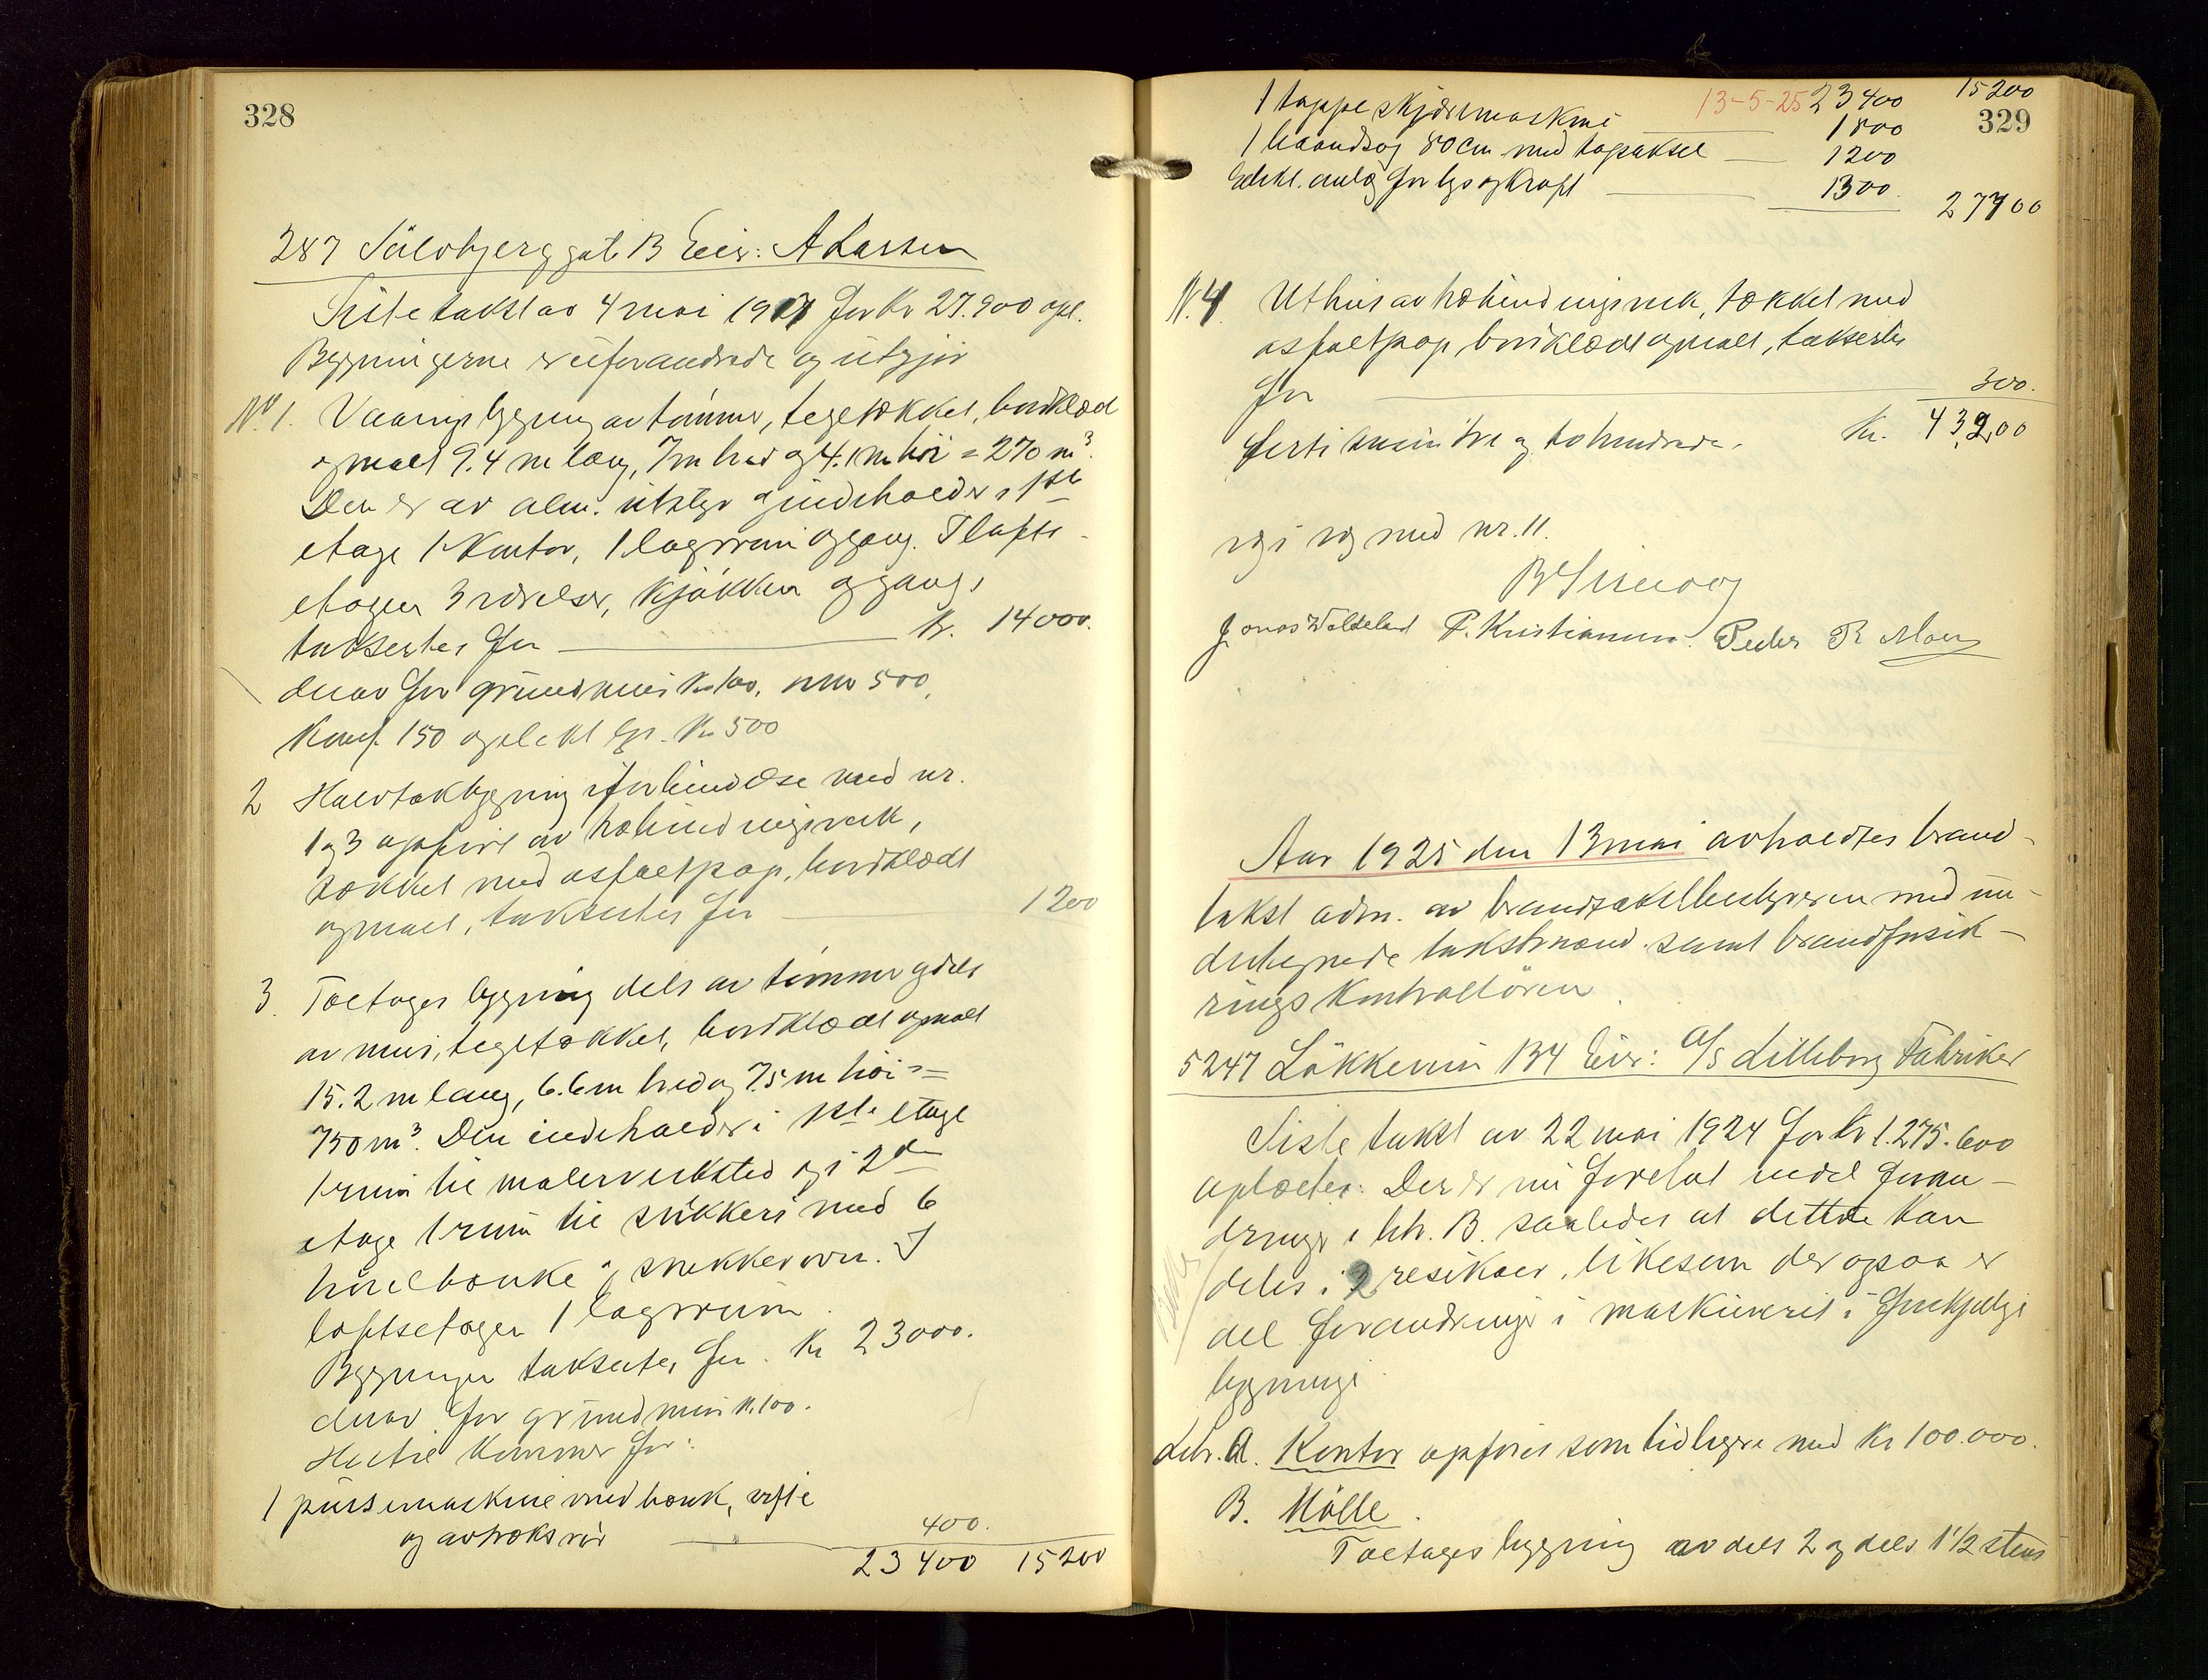 328
287 Sölvbjerggt. 13 Eier: A Larsen
Siste takst av 4 mai 1917 for Kr 27.900 opl.
Bygningerne er uforandrede og utgjør
No. 1. Vaaningsbygning av tømmer, tegltækket, bordklæd
og malt 9.4 m lang, 7 m bred og 4.1 m høi = 270 m³.
Den er av alm. utstyr og indeholder i 1ste
etage 1 Kontor, 1 lagerrum og gang. I lofts-
etagen 3 værelser, Kjøkken og gang,
takseres for Kr. 14000.
derav for grundmur Kr 100,        500,
      150 og elekt lys. Kr 500
2 Halvtakbygning i forbindelse med nr.
1 og 3 opført av bindingsverk,
tækket med asfaltpap, bordklædt
og malt, takseres for 1200
3. Toetages bygning dels av tømmer og dels
av mur, tegltækket, bordklædt og malt
15.2 m lang, 6.6 m bred og 7.5 m høi =
750 m³. Den indeholder i 1ste etage
1 rum til malerverksted og i 2den
etage 1 rum til snikkeri med 6
høvelbænke og snekkerovn. I
loftsetagen 1 lagerrum.
Bygningen takseres for Kr 23000.
derav for grundmur Kr. 100.
Hertil kommer for:
1 pussemaskine med bænk, vifte
og avtræksrør 400.
23400 15200
13-5-25 23400 15200
329
1 tappeskjæremaskine 1800
1 baandsag 80 cm med tapaksel 1200
Elekt. anlæg for lys og kraft 1300.
27700
N. 4. Uthus av bindingsverk, tækket med
asfaltpap, bordklædt og malt, takseres
for 300.
førti tusin tre og to hundrede. Kr. 43200
og i og med nr. 11.
Jonas Waldeland P. Kristiansen. Peder R. Moen
Aar 1925 den 13 mai avholdtes brand-
takst adm. av brandtakstbestyreren med un-
dertegnede takstmænd samt brandforsik-
rings Kontrolløren
5247 Lökkevei 134 Eier: A/S Lilleborg Fabriker
Siste takst av 22 mai 1924 for Kr 1.275.600
oplæstes. Der er nu foretat endel foran-
dringer i litr. B. saaledes at dette kan
deles i 2 resikoer, likesom der ogsaa er
del forandringer i maskineriet i forskjellige
bygninger
Litr. A. Kontor opføres som tidligere med Kr 100.000.
B. Mölle.
Toetages bygning av dels 2 og dels 1 1/2 stens